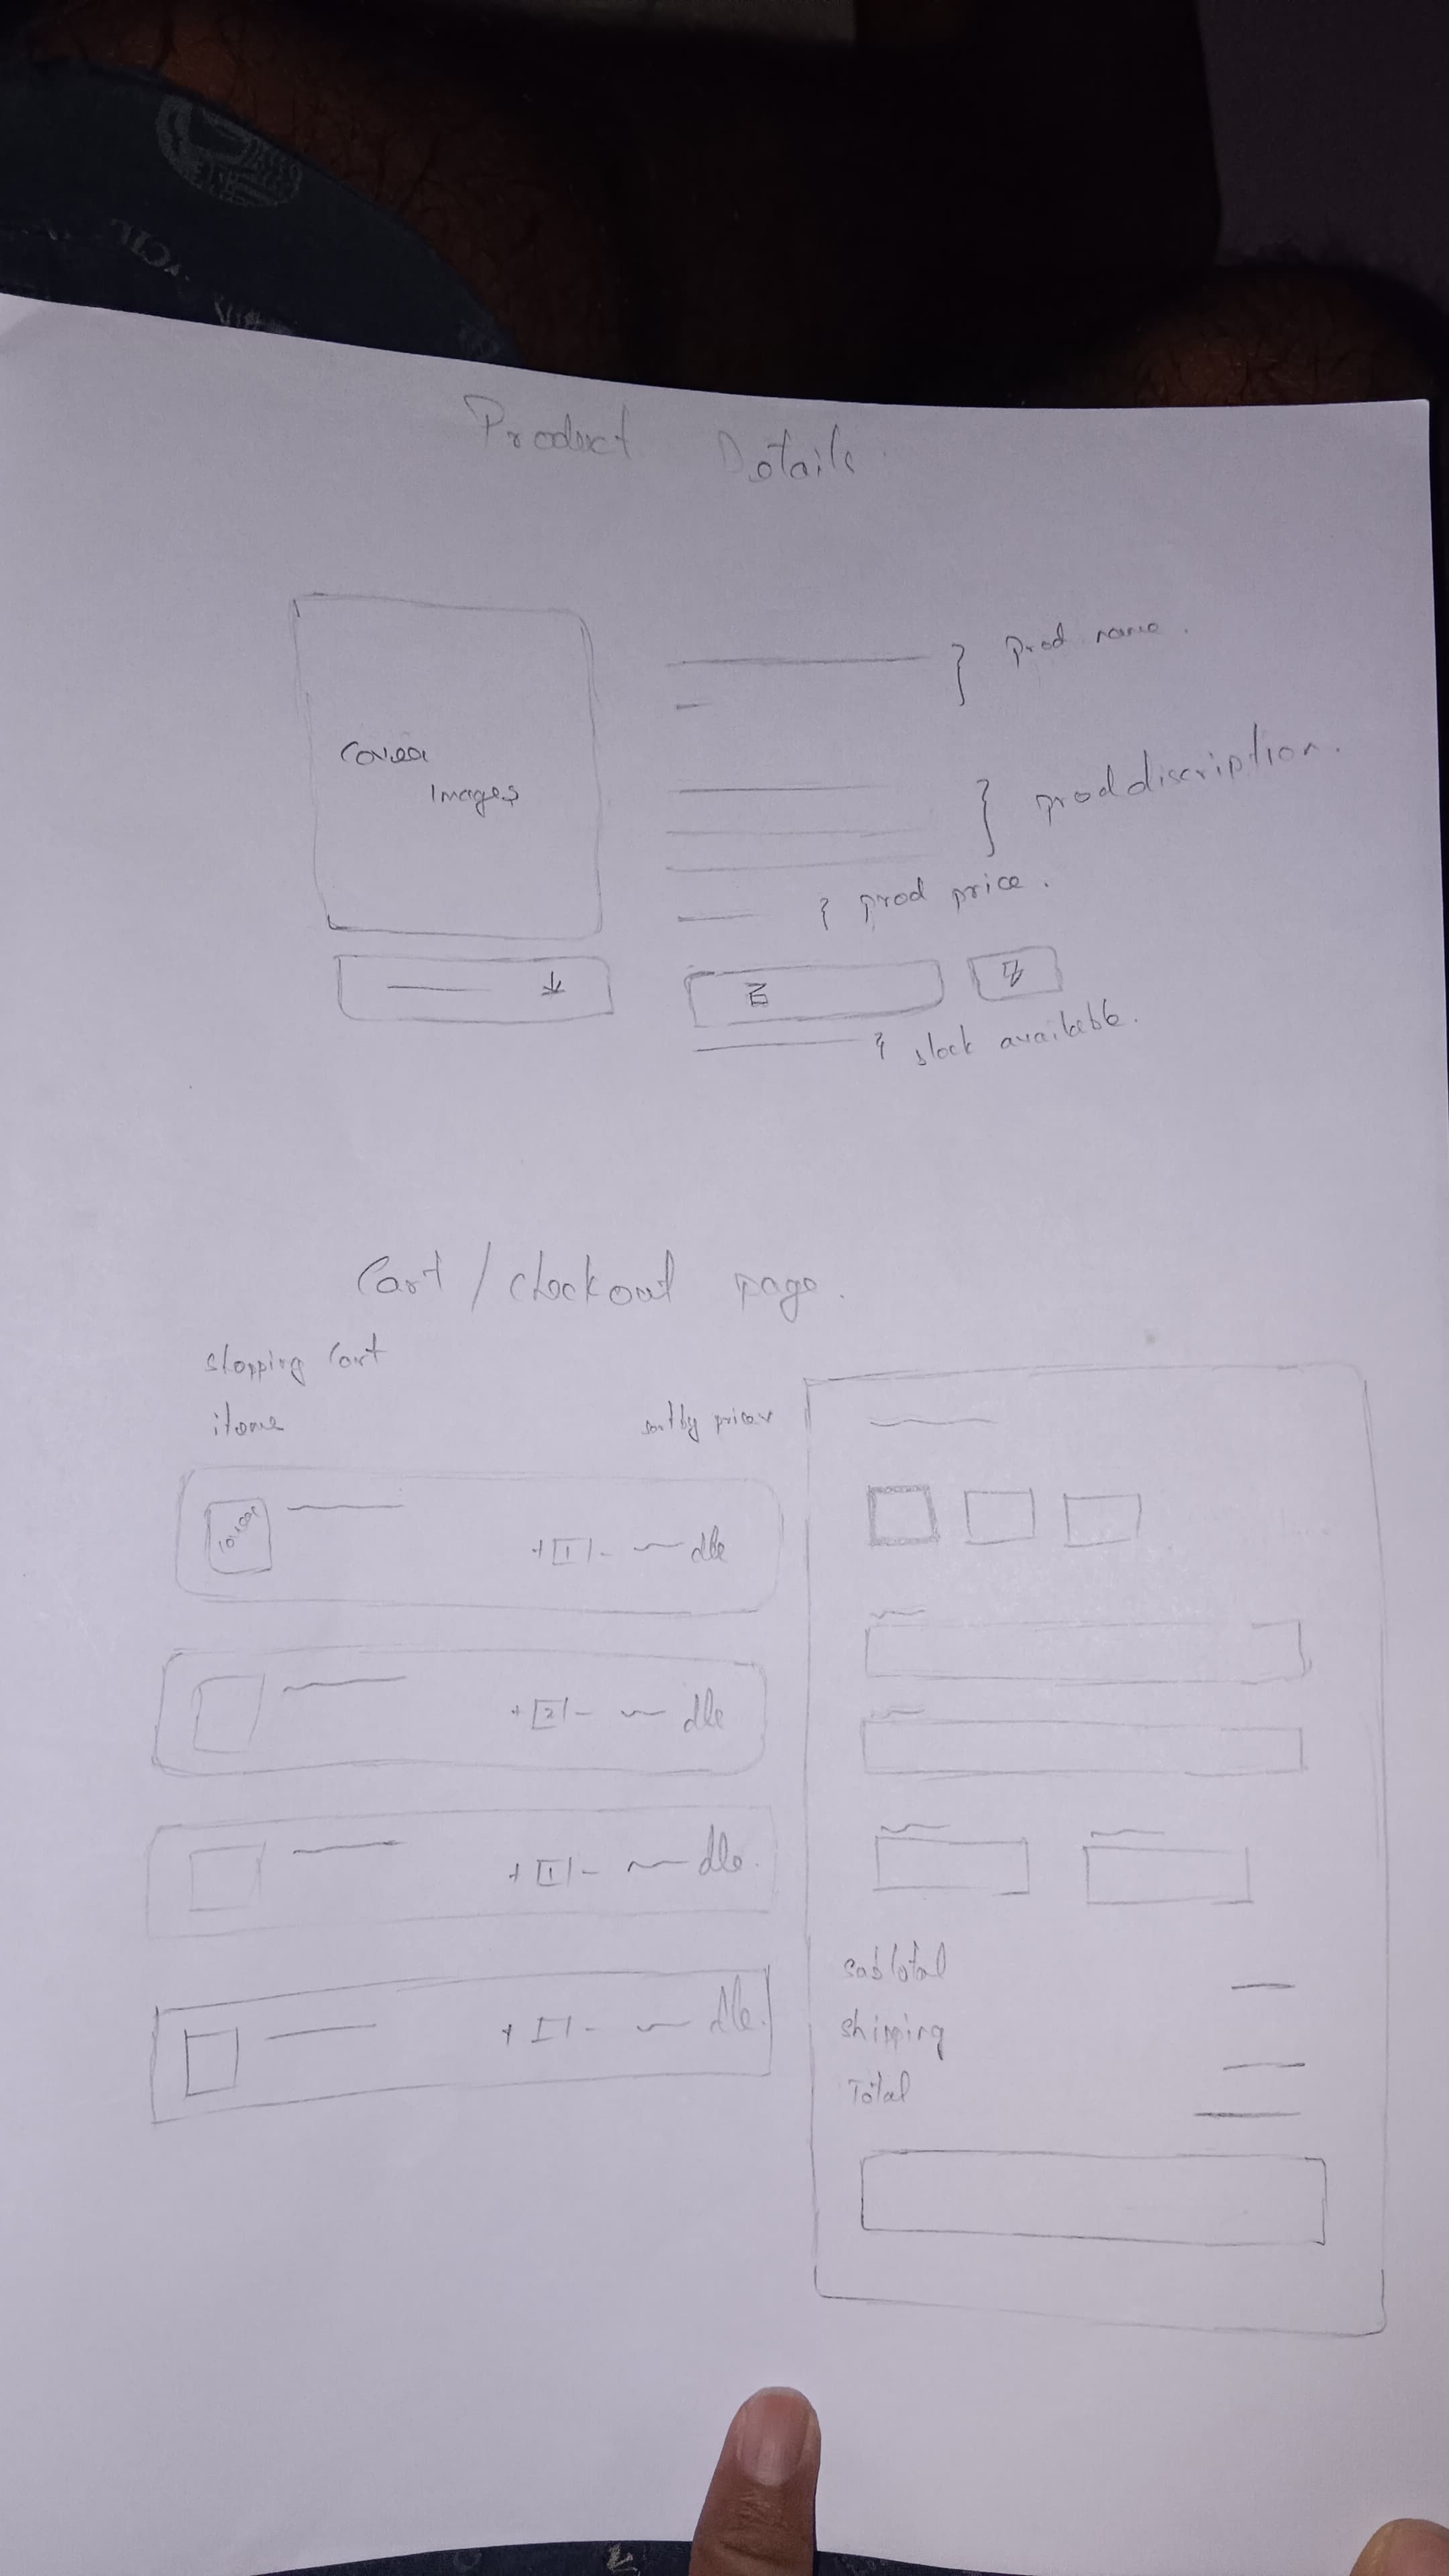 Product Details.
Cover
Images
Prod name.
prod discription.
prod price.
stock available.
Cart / checkout page.
shopping cart
items
sort by price
cover
+ 1 - dle
+ 2 - dle
+ 1 - dle.
+ 1 - dle.
subtotal
shipping
Total